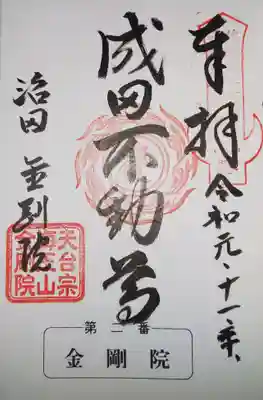 奉拝 令和元、十一、
成田不動尊
沼田 金剛院
天台宗
金剛院
第二番
金剛院